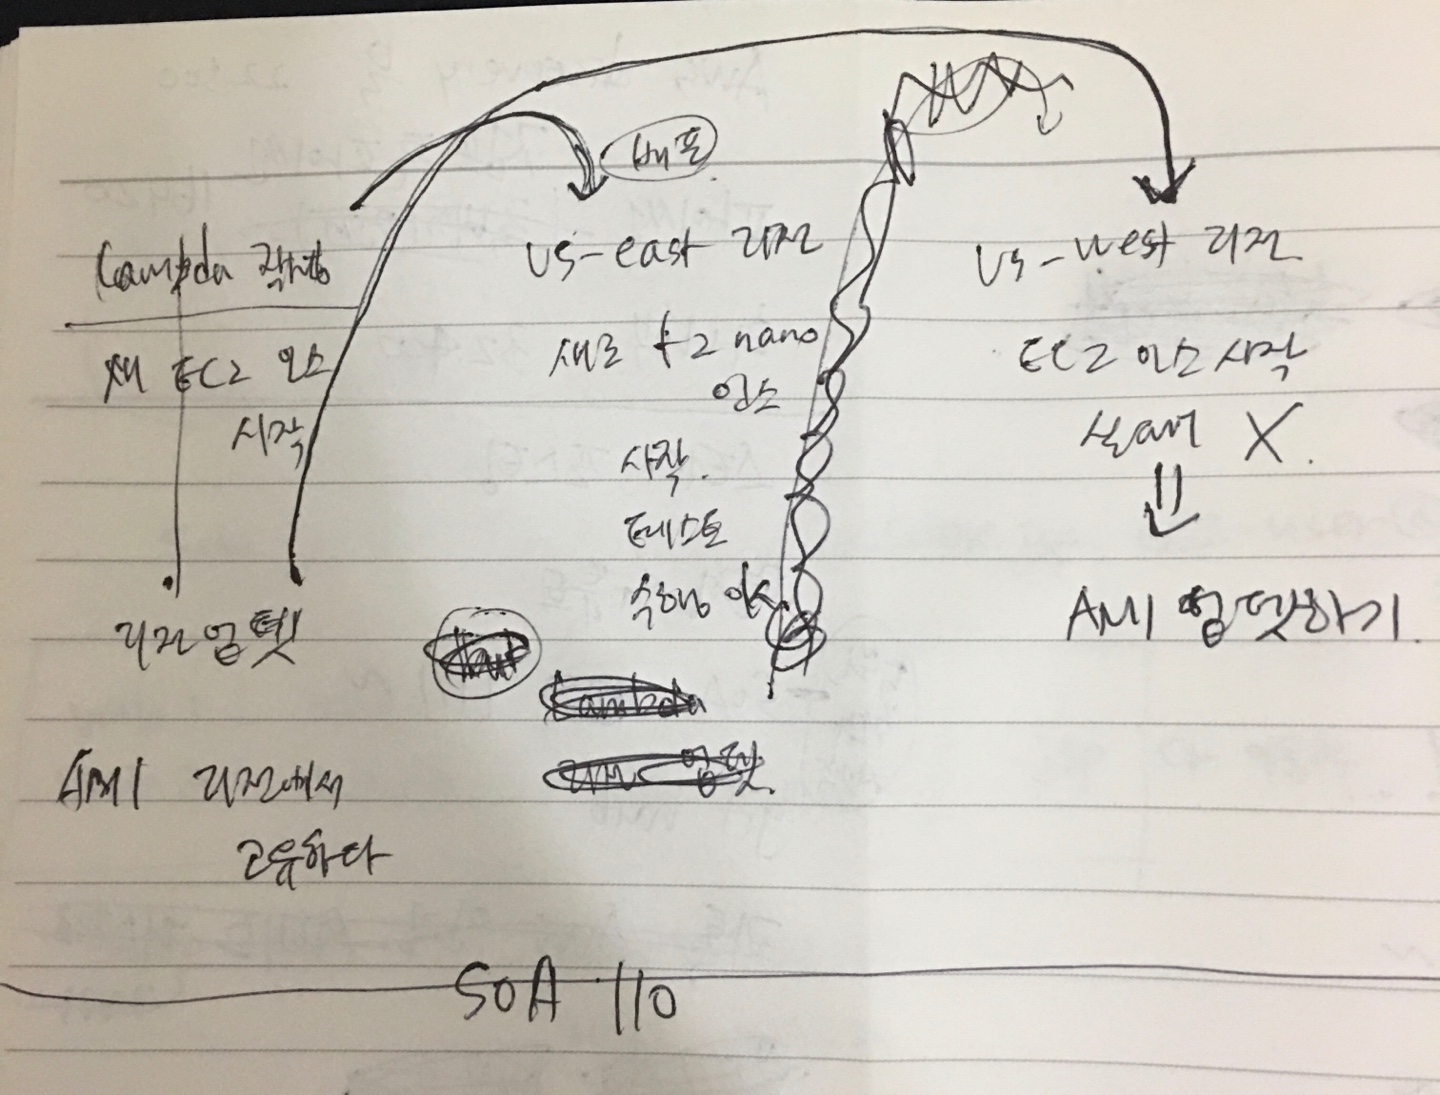 배포
Lambda 작성
새 EC2 인스
시작
리전 업뎃
AMI 리전에서
고유하다
us-east 리전
새로 t2 nano
인스
시작
테스트
수행
Lambda
업뎃
us-west 리전
EC2 인스 시작
X
AMI 업뎃하기
SOA 110